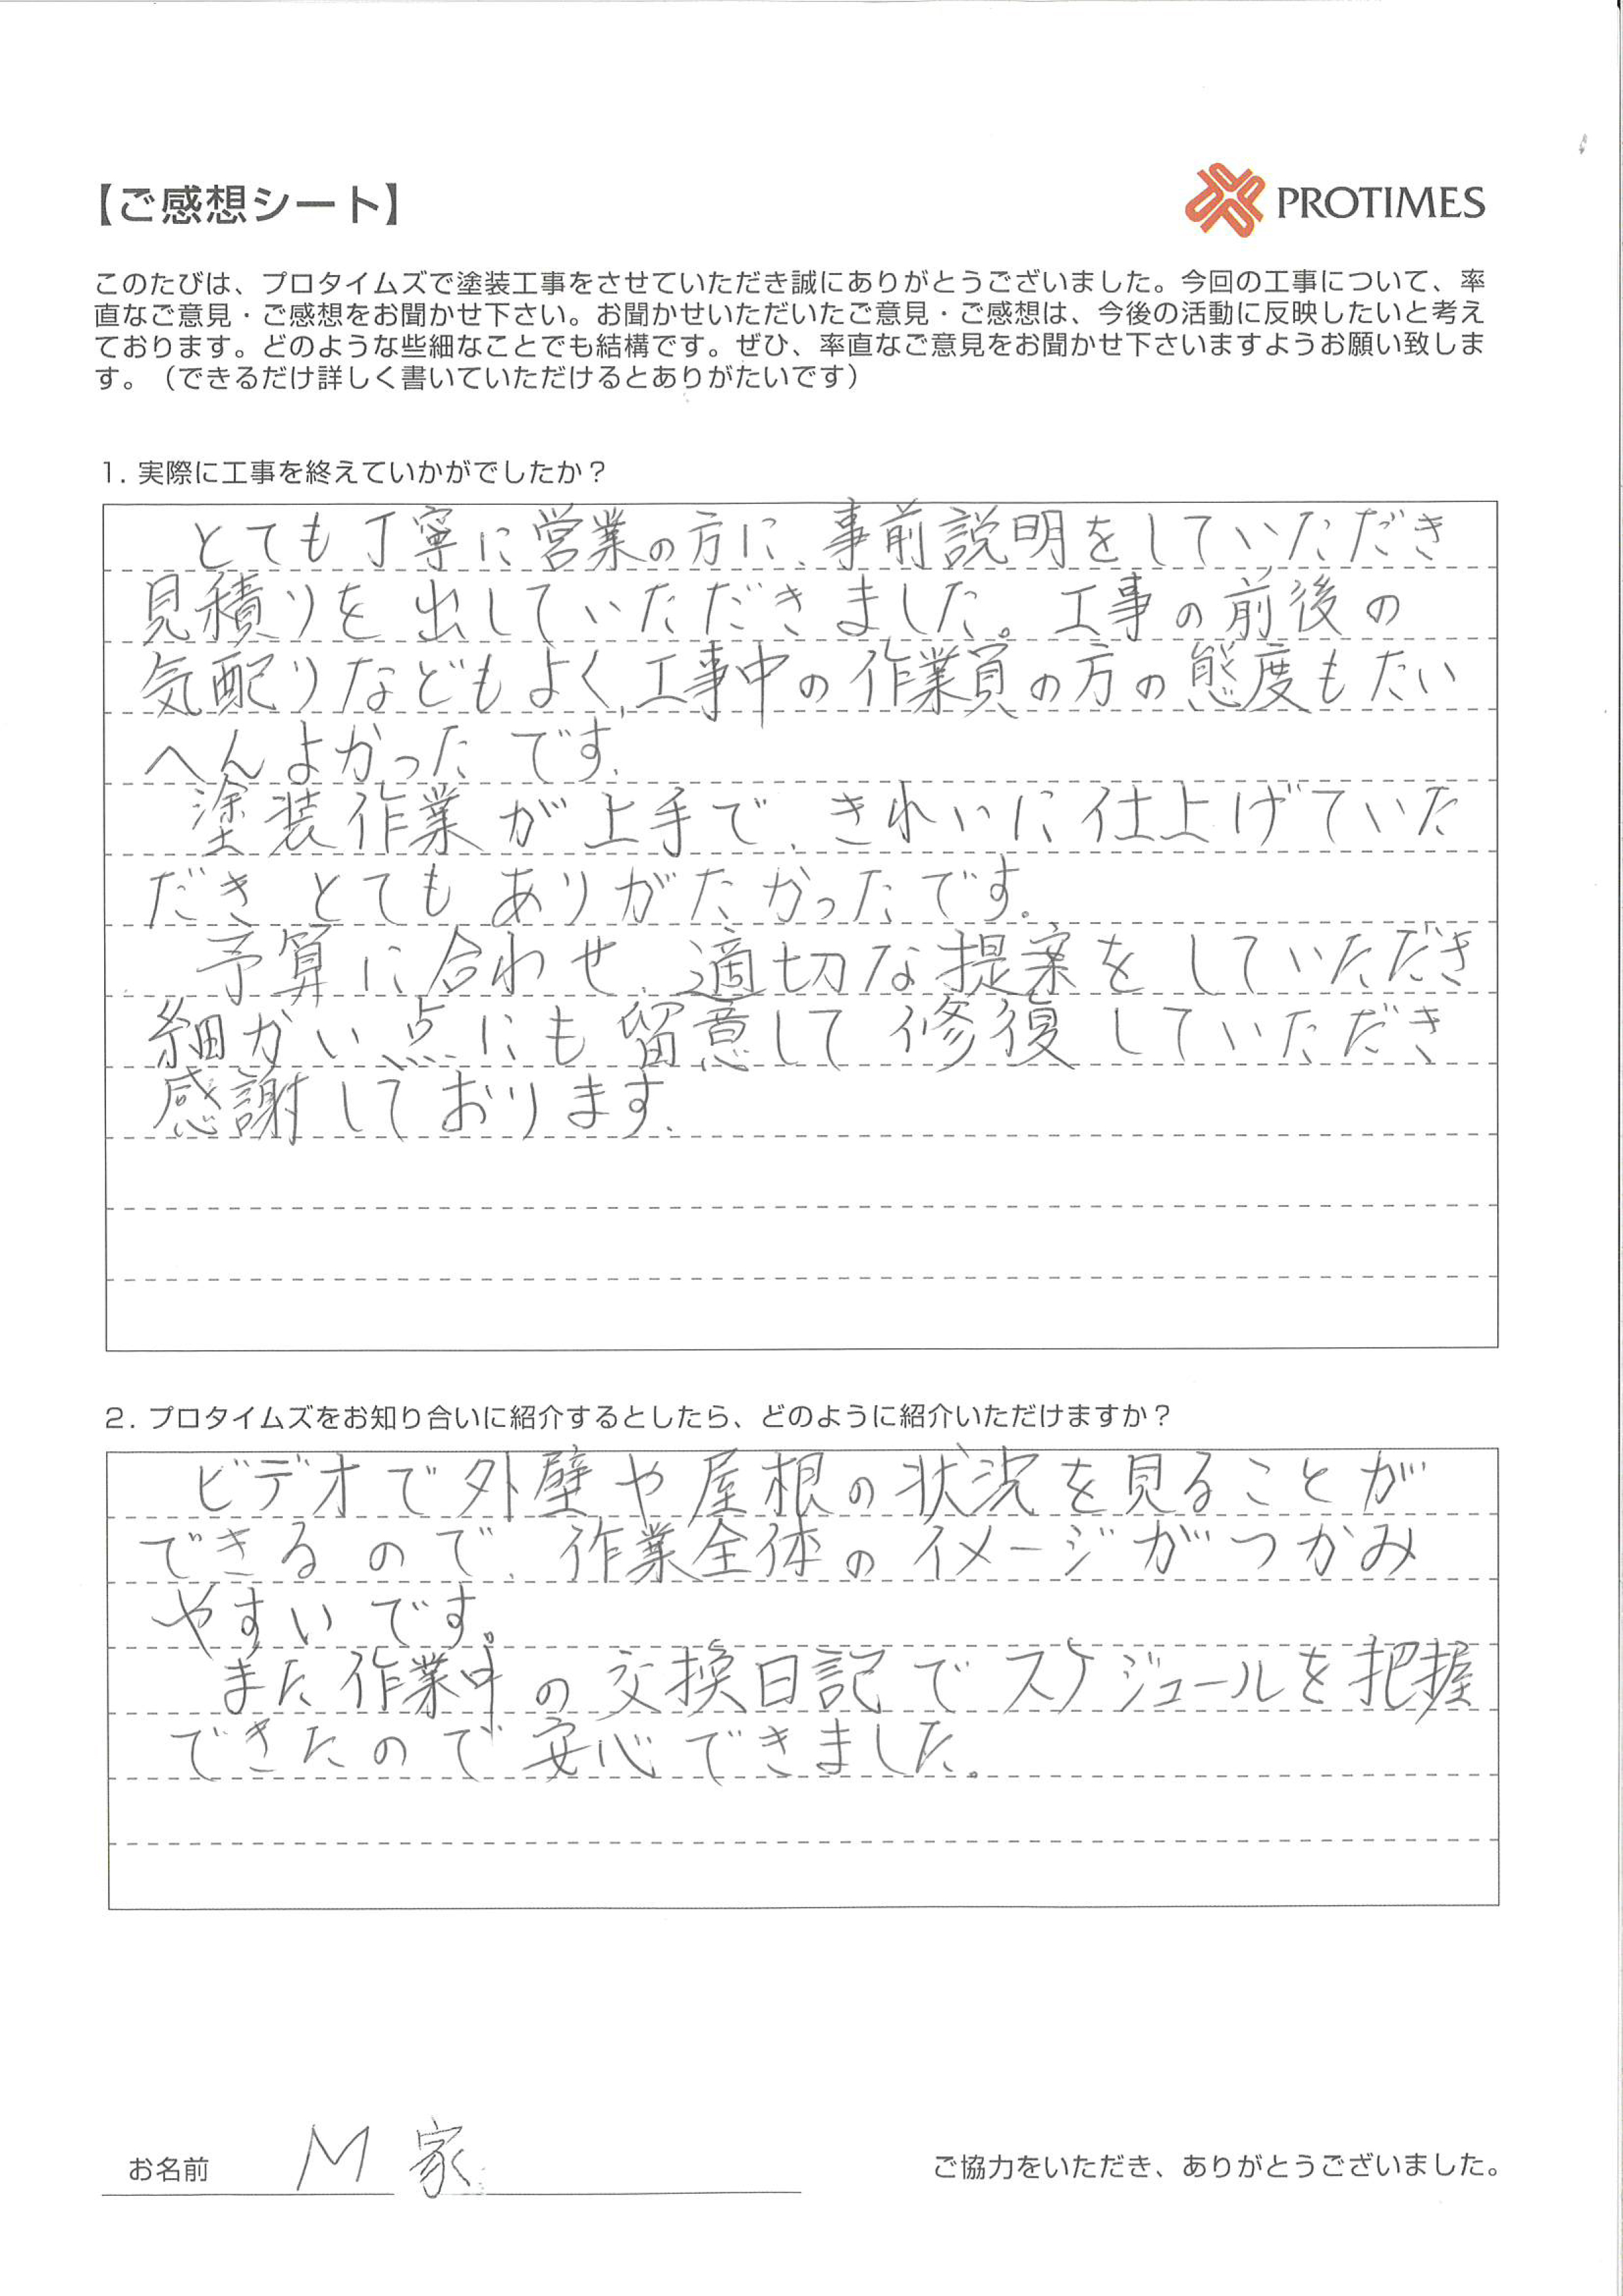 【ご感想シート】
PROTIMES
このたびは、プロタイムズで塗装工事をさせていただき誠にありがとうございました。今回の工事について、率
直なご意見・ご感想をお聞かせ下さい。お聞かせいただいたご意見・ご感想は、今後の活動に反映したいと考え
ております。どのような些細なことでも結構です。ぜひ、率直なご意見をお聞かせ下さいますようお願い致しま
す。（できるだけ詳しく書いていただけるとありがたいです）
1. 実際に工事を終えていかがでしたか？
とても丁寧に営業の方に、事前説明をしていただき
見積りを出していただきました。工事の前後の
気配りなどもよく、工事中の作業員の方の態度もたい
へんよかったです。
塗装作業が上手で、きれいに仕上げていた
だきとてもありがたかったです。
予算に合わせ、適切な提案をしていただき
細かい点にも留意して修復していただき
感謝しております。
2. プロタイムズをお知り合いに紹介するとしたら、どのように紹介いただけますか？
ビデオで外壁や屋根の状況を見ることが
できるので、作業全体のイメージがつかみ
やすいです。
また作業中の交換日記でスケジュールを把握
できたので安心できました。
お名前 M家
ご協力をいただき、ありがとうございました。